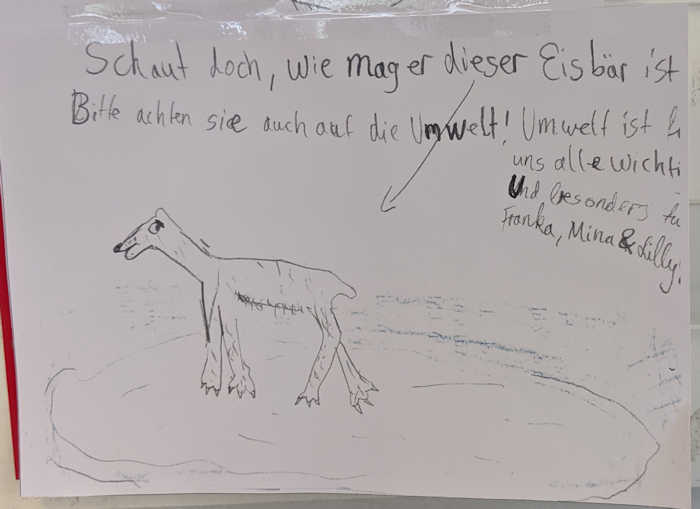 Schaut doch, wie mager dieser Eisbär ist
Bitte achten sie auch auf die Umwelt! Umwelt ist
uns alle wichti
Und besonders
Franka, Mina & Lilly!